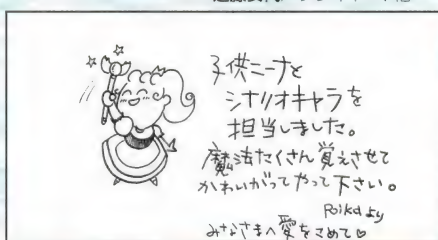 子供ニーナと
シナリオキャラを
担当しました。
魔法たくさん覚えさせて
かわいがってやって下さい。
Poika より
みなさまへ愛をこめて♡